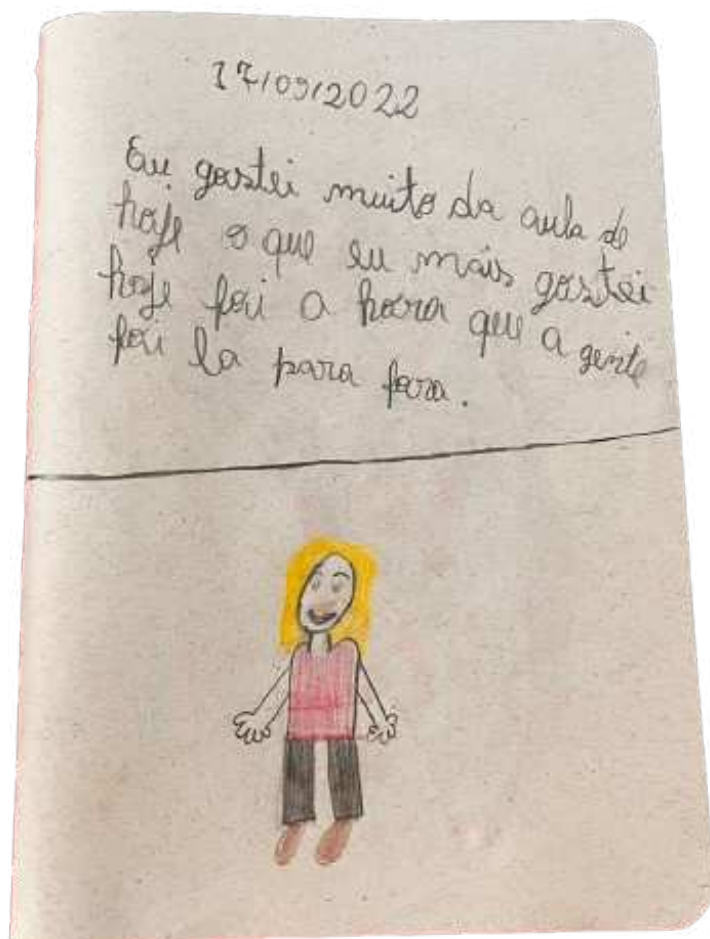 17/09/2022
Eu gostei muito da aula de
hoje o que eu mais gostei
hoje foi a hora que a gente
foi la para fora.